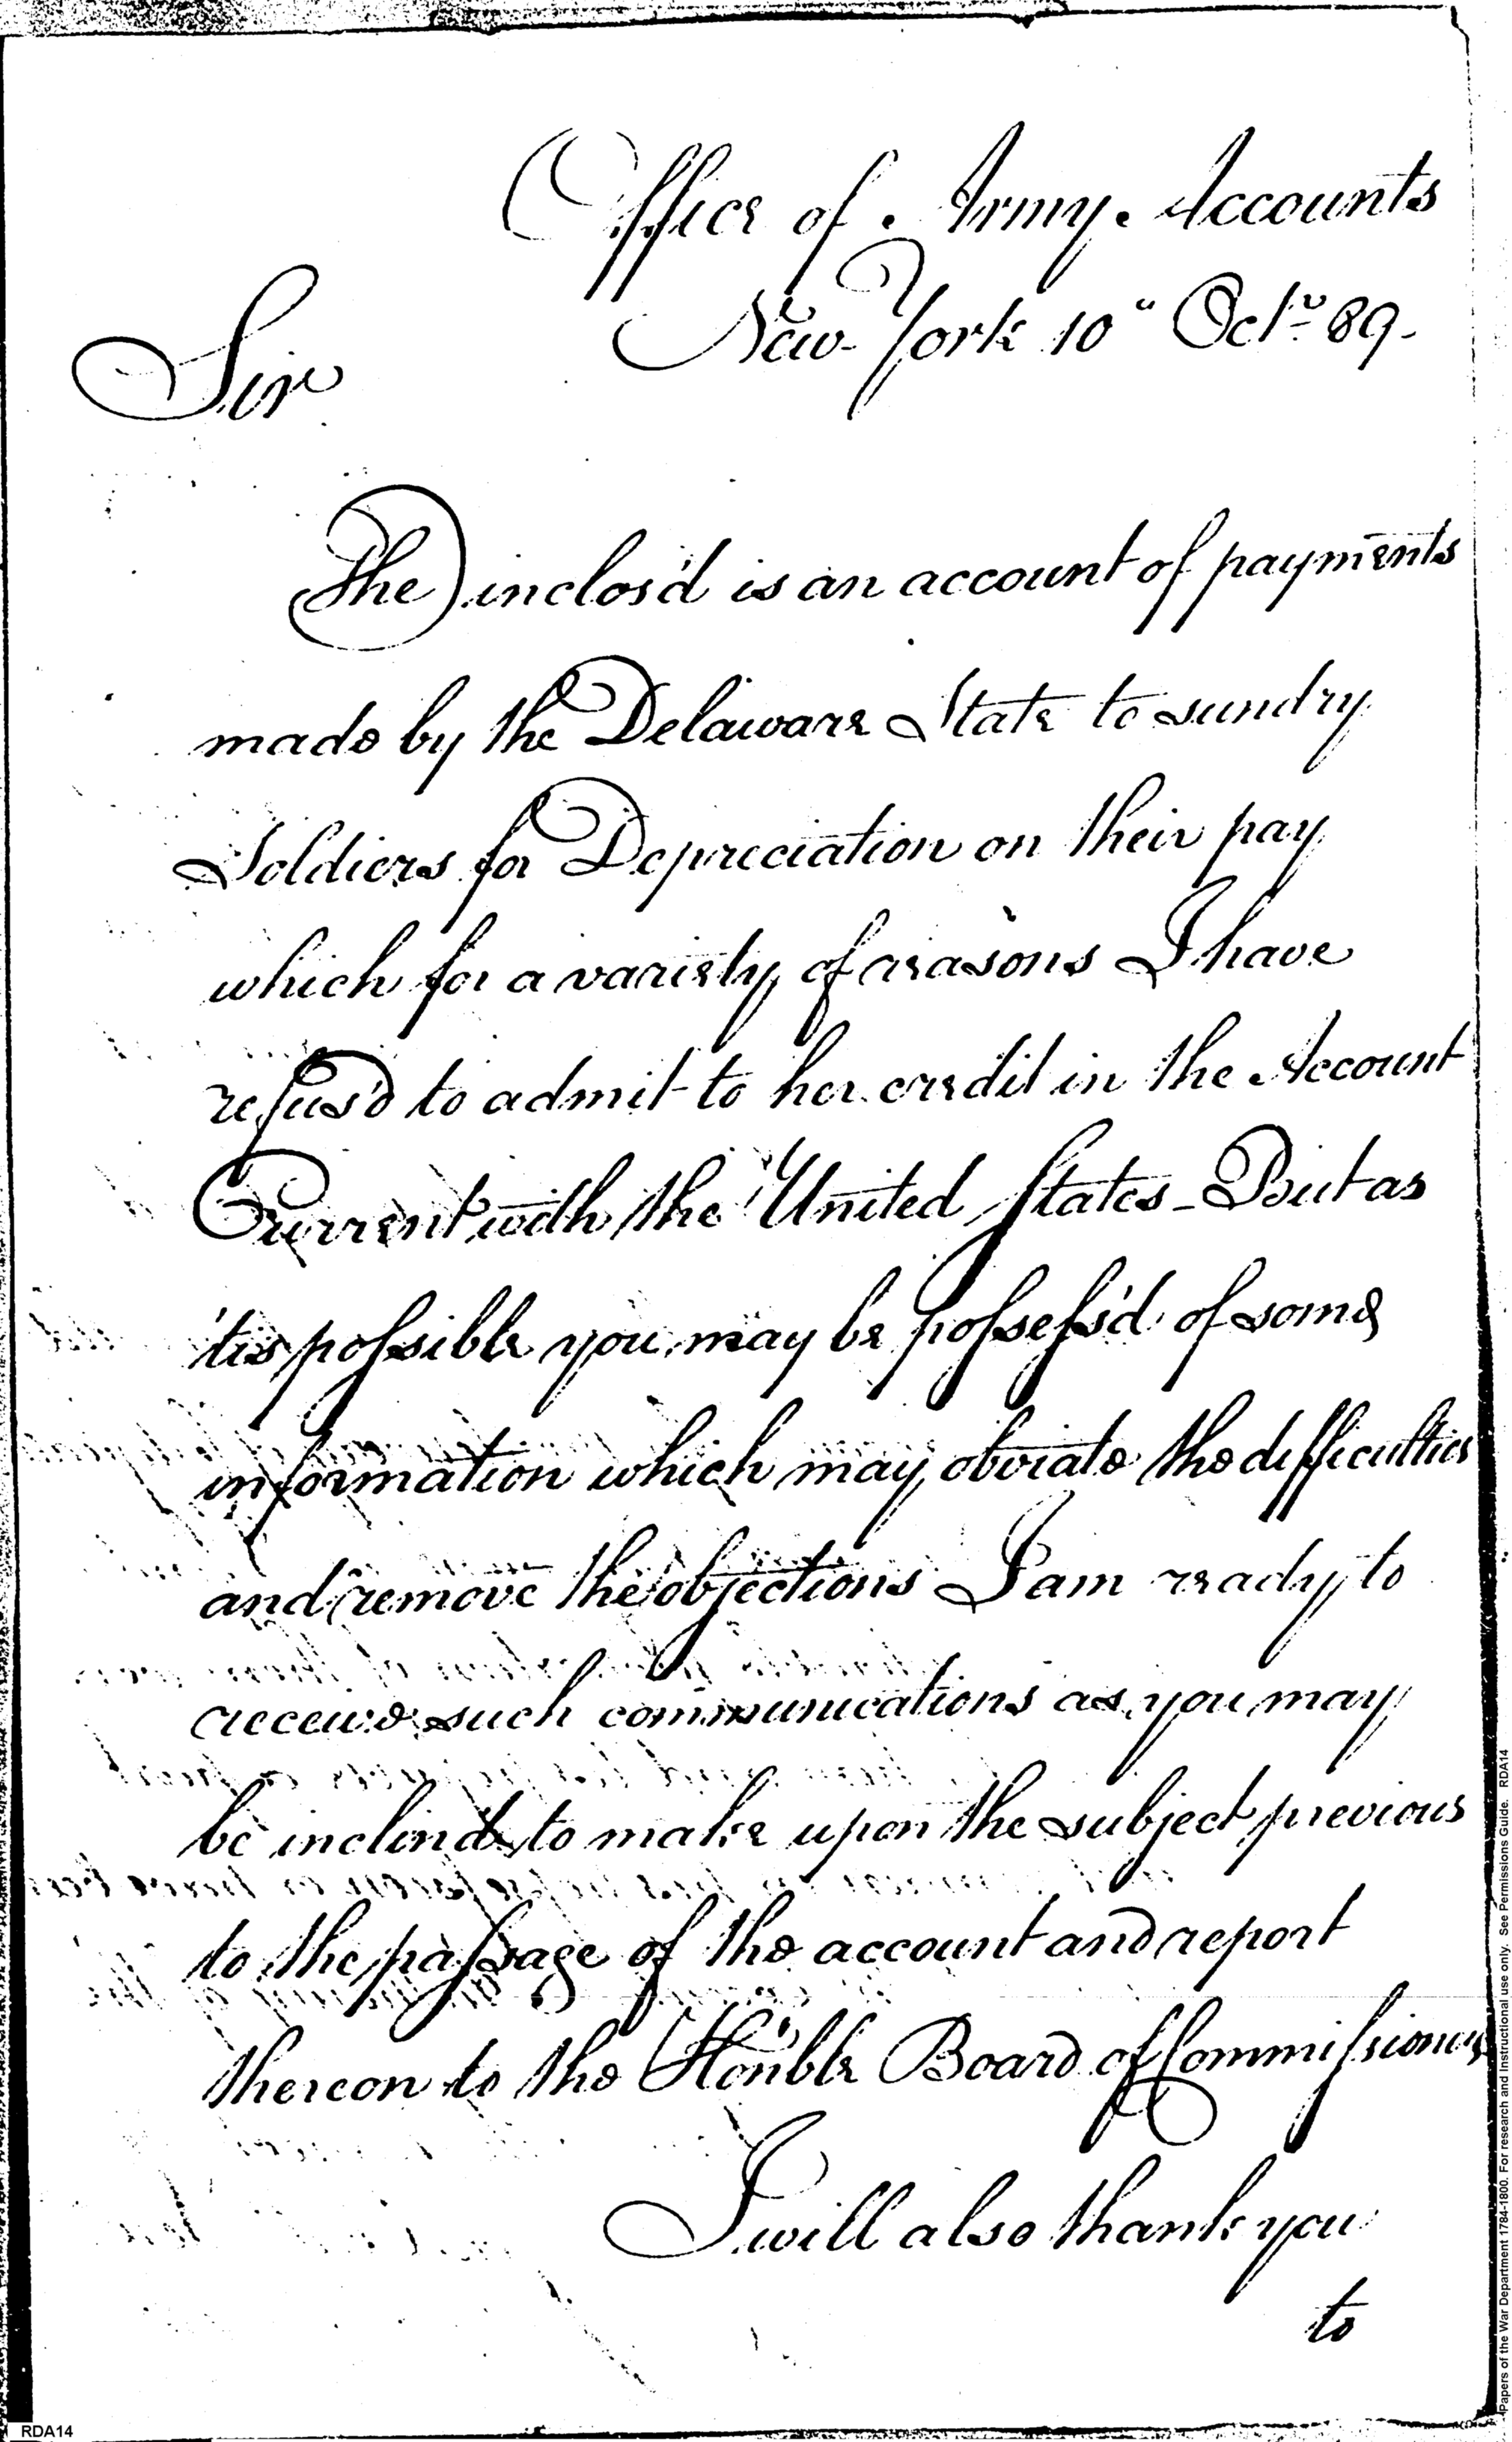 Office of Army Accounts
New York 10" Octr 89.
Sir
The inclos'd is an account of payments
made by the Delaware State to sundry
Soldiers for Depreciation on their pay
which for a variety of reasons I have
refus'd to admit to her credit in the Account
Current with the United States - But as
'tis possible you may be possess'd of some
information which may obviate the difficulties
and remove the objections I am ready to
receive such communications as you may
be inclin'd to make upon the subject previous
to the passage of the account and report
thereon to the Hon'ble Board of Commissioners
I will also thank you
to
Papers of the War Department 1784-1800. For research and instructional use only. See Permissions Guide. RDA14
RDA14